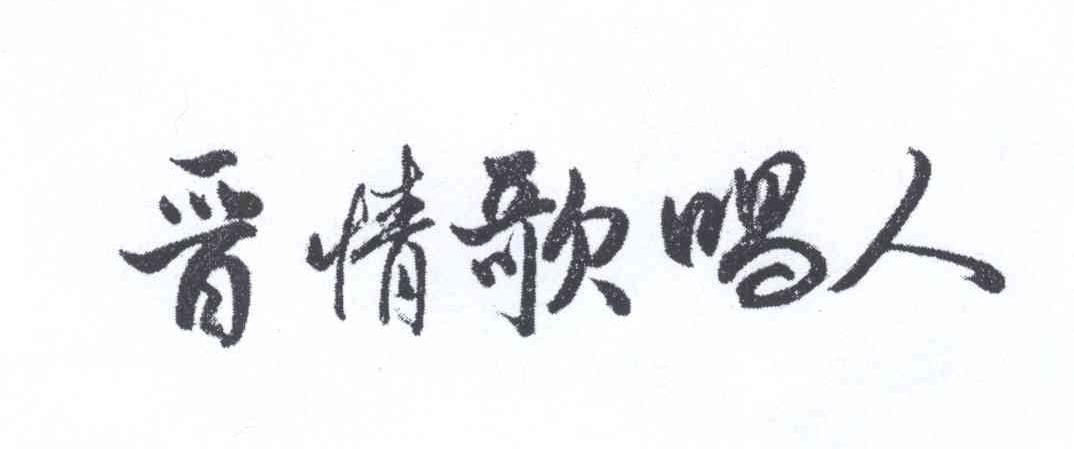 晋情歌唱人